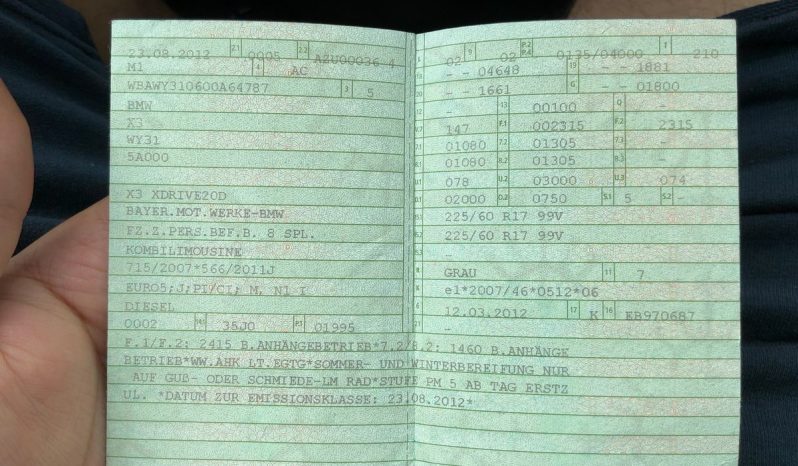 23.08.2012 2.1 0005 2.2 A2U00036 4
M1 4 AC
WBAWY310600A64787 3 5
BMW
X3
WY31
5A000
X3 XDRIVE20D
BAYER.MOT.WERKE-BMW
FZ.Z.PERS.BEF.B. 8 SPL.
KOMBILIMOUSINE
715/2007*566/2011J
EURO5;J;PI/CI; M, N1 I
DIESEL
0002 35J0 P.1 01995
02 9 02 P.2 P.4 0135/04000 T 210
- - 04648 19 - - 1881
20 - - 1661 G - - 01800
- 13 00100 Q -
147 F.1 002315 F.2 2315
01080 7.2 01305 7.3 -
01080 8.2 01305 8.3 -
078 U.2 03000 U.3 074
02000 O.2 0750 S.1 5 S.2 -
225/60 R17 99V
225/60 R17 99V
-
R GRAU 11 7
K e1*2007/46*0512*06
6 12.03.2012 17 K 16 EB970687
21 -
F.1/F.2: 2415 B.ANHÄNGEBETRIEB*7.2/8.2: 1460 B.ANHÄNGE
BETRIEB*WW.AHK LT.EGTG*SOMMER- UND WINTERBEREIFUNG NUR
AUF GUß- ODER SCHMIEDE-LM RAD*STUFE PM 5 AB TAG ERSTZ
UL. *DATUM ZUR EMISSIONSKLASSE: 23.08.2012*